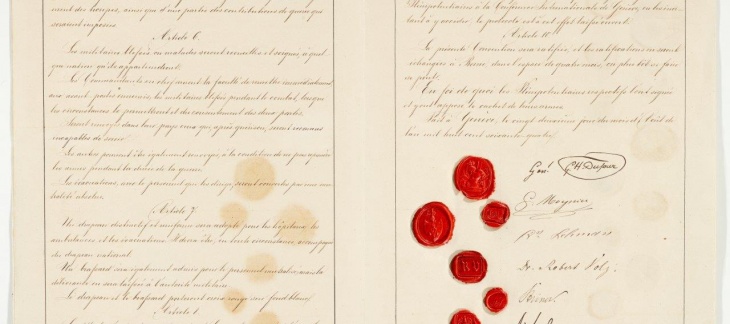 ment des troupes, ainsi que d'une partie des contributions de guerre qui
seraient imposées.
Article 6.
Les militaires blessés ou malades seront recueillis et soignés, à quel-
que nation qu'ils appartiendront.
Les Commandants en chef auront la faculté de remettre immédiatement
aux avant-postes ennemis, les militaires blessés pendant le combat, lorsque
les circonstances le permettront et du consentement des deux partis.
Seront renvoyés dans leur pays ceux qui, après guérison, seront reconnus
incapables de servir.
Les autres pourront être également renvoyés, à la condition de ne pas reprendre
les armes pendant la durée de la guerre.
Les évacuations, avec le personnel qui les dirige, seront couvertes par une neu-
tralité absolue.
Article 7.
Un drapeau distinctif et uniforme sera adopté pour les hôpitaux, les
ambulances et les évacuations. Il devra être, en toute circonstance, accompagné
du drapeau national.
Un brassard sera également admis pour le personnel neutralisé, mais la
délivrance en sera laissée à l'autorité militaire.
Le drapeau et le brassard porteront croix rouge sur fond blanc.
Article 8.
Plénipotentiaires à la Conférence Internationale de Genève, en les invi-
tant à y accéder; le protocole est à cet effet laissé ouvert.
Article 10.
La présente Convention sera ratifiée, et les ratifications en seront
échangées à Berne, dans l'espace de quatre mois, ou plus tôt si faire
se peut.
En foi de quoi les Plénipotentiaires respectifs l'ont signée
et y ont apposé le cachet de leurs armes.
Fait à Genève, le vingt deuxième jour du mois d'Août de
l'an mil huit cent soixante-quatre.
Gén. G H Dufour
G. Moynier
Dr Lehmann
Dr. Robert Volz.
Steiner